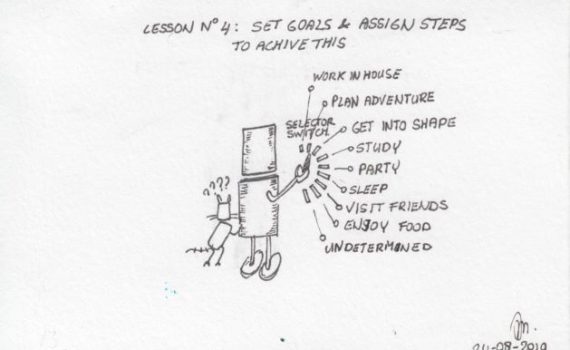 LESSON N° 4: SET GOALS & ASSIGN STEPS
TO ACHIVE THIS
WORK IN HOUSE
PLAN ADVENTURE
SELECTOR
SWITCH
GET INTO SHAPE
STUDY
PARTY
SLEEP
VISIT FRIENDS
ENJOY FOOD
UNDETERMINED
????